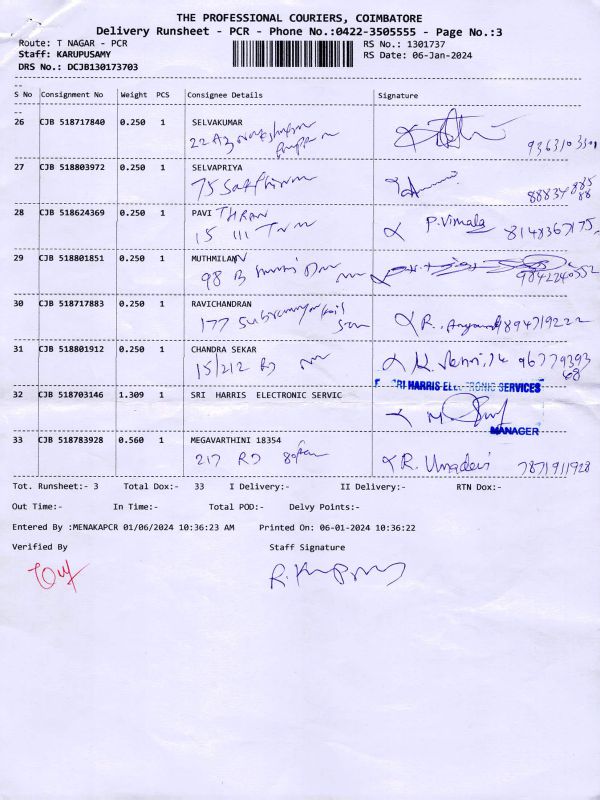 THE PROFESSIONAL COURIERS, COIMBATORE
Delivery Runsheet - PCR - Phone No.:0422-3505555 - Page No.:3
Route: T NAGAR - PCR RS No.: 1301737
Staff: KARUPUSAMY RS Date: 06-Jan-2024
DRS No.: DCJB130173703
S No Consignment No Weight PCS Consignee Details Signature
26 CJB 518717840 0.250 1 SELVAKUMAR
22 A3
9363103301
27 CJB 518803972 0.250 1 SELVAPRIYA
75
28 CJB 518624369 0.250 1 PAVITHRAN P. Vimala 8148367175
15 111
29 CJB 518801851 0.250 1 MUTHMILAN
98 B 9842240552
30 CJB 518717883 0.250 1 RAVICHANDRAN
177 R. 9894719222
31 CJB 518801912 0.250 1 CHANDRA SEKAR
15/212 RD 9677939368
SRI HARRIS ELECTRONIC SERVICES
32 CJB 518703146 1.309 1 SRI HARRIS ELECTRONIC SERVIC
MANAGER
33 CJB 518783928 0.560 1 MEGAVARTHINI 18354
217 RD R. Umadevi 7871911928
Tot. Runsheet:- 3 Total Dox:- 33 I Delivery:- II Delivery:- RTN Dox:-
Out Time:- In Time:- Total POD:- Delvy Points:-
Entered By :MENAKAPCR 01/06/2024 10:36:23 AM Printed On: 06-01-2024 10:36:22
Verified By Staff Signature